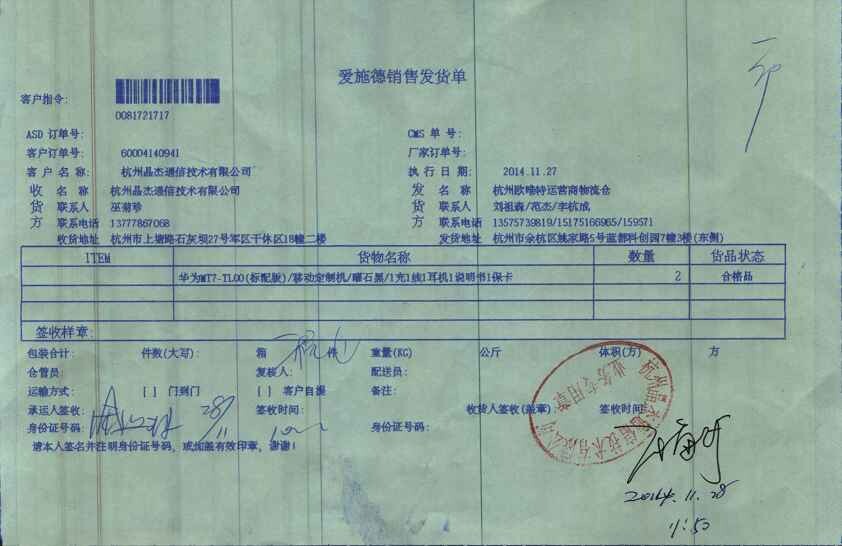 爱施德销售发货单
客户指令:
0081721717
ASD 订单号: CMS 单 号:
客户订单号: 60004140941 厂家订单号:
客 户 名 称: 杭州晶杰通信技术有限公司 执 行 日 期: 2014.11.27
收 名 称 杭州晶杰通信技术有限公司 发 名 称 杭州欧唯特运营商物流仓
货 联系人 巫菊珍 货 联系人 刘祖森/范杰/李杭成
方 联系电话 13777867068 方 联系电话 13575739819/15175166965/159571
收货地址 杭州市上塘路石灰坝27号军区干休区18幢二楼 发货地址 杭州市余杭区姚家路5号蓝都科创园7幢3楼(东侧)
ITEM 货物名称 数量 货品状态
华为MT7-TL00(标配版)/移动定制机/曜石黑/1充1线1耳机1说明书1保卡 2 合格品
签收样章:
包装合计: 件数(大写): 箱 件 重量(KG) 公斤 体积(方) 方
仓管员: 复核人: 配送员:
运输方式: [ ] 门到门 [ ] 客户自提 备注:
承运人签收: 28/11 签收时间: 收货人签收(盖章): 签收时间:
身份证号码: 身份证号码:
请本人签名并注明身份证号码，或加盖有效印章，谢谢!
业务专用章
2014.11.28
11:50